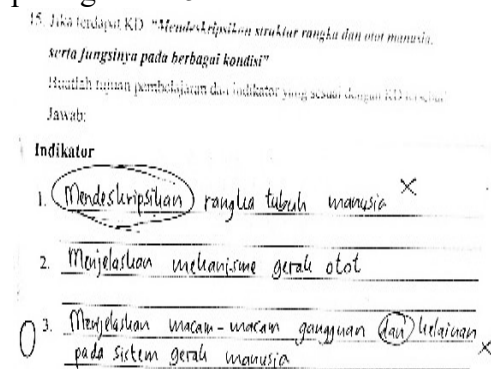 15. Jika terdapat KD "Mendeskripsikan struktur rangka dan otot manusia,
serta fungsinya pada berbagai kondisi"
Buatlah tujuan pembelajaran dan indikator yang sesuai dengan KD tersebut
Jawab:
Indikator
1. Mendeskripsikan rangka tubuh manusia
2. Menjelaskan mekanisme gerak otot
3. Menjelaskan macam-macam gangguan dan kelainan
pada sistem gerak manusia